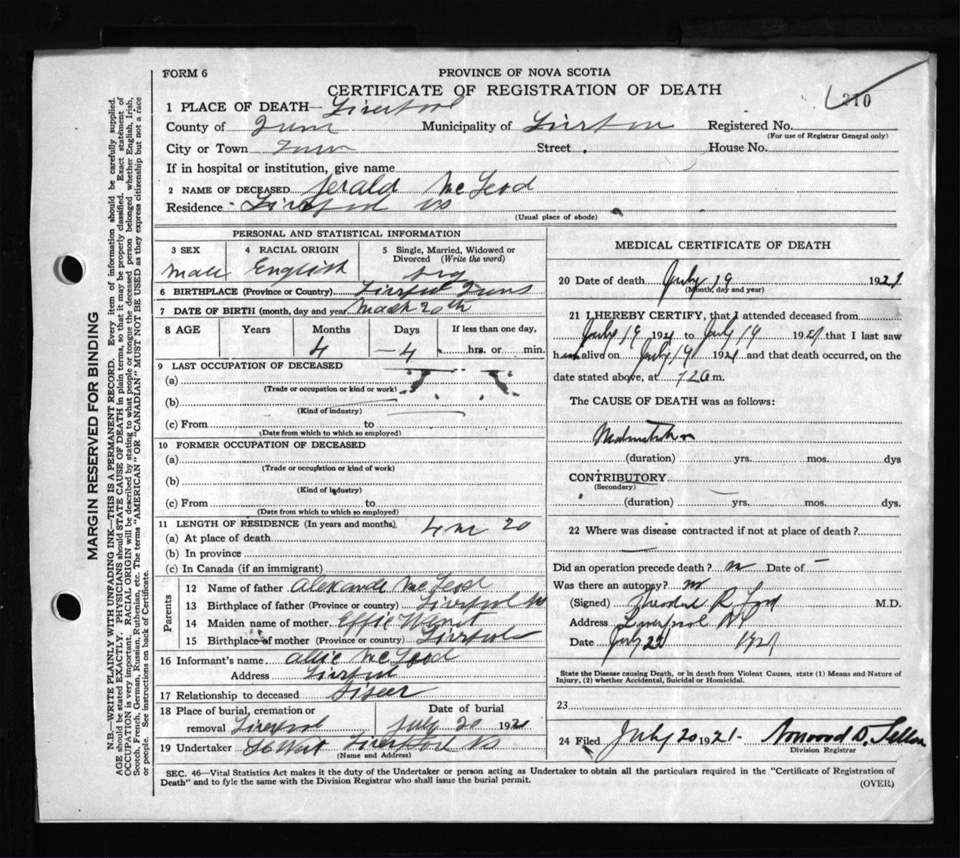 FORM 6
PROVINCE OF NOVA SCOTIA
CERTIFICATE OF REGISTRATION OF DEATH
210
1 PLACE OF DEATH— Liverpool
County of Municipality of Registered No.
(For use of Registrar General only)
City or Town Street House No.
If in hospital or institution, give name
2 NAME OF DECEASED Jerald McLeod
Residence Liverpool NS
(Usual place of abode)
PERSONAL AND STATISTICAL INFORMATION
3 SEX 4 RACIAL ORIGIN 5 Single, Married, Widowed or Divorced (Write the word)
Male English
6 BIRTHPLACE (Province or Country) Liverpool
7 DATE OF BIRTH (month, day and year) March 20th
8 AGE Years Months Days If less than one day,
4 4 hrs. or min.
9 LAST OCCUPATION OF DECEASED
(a)
(Trade or occupation or kind or work)
(b)
(Kind of industry)
(c) From to
(Date from which to which so employed)
10 FORMER OCCUPATION OF DECEASED
(a)
(Trade or occupation or kind of work)
(b)
(Kind of industry)
(c) From to
(Date from which to which so employed)
11 LENGTH OF RESIDENCE (In years and months)
4 m 20
(a) At place of death
(b) In province
(c) In Canada (if an immigrant)
Parents
12 Name of father Alexander McLeod
13 Birthplace of father (Province or country) Liverpool NS
14 Maiden name of mother Effie
15 Birthplace of mother (Province or country) Liverpool
16 Informant's name Allie McLeod
Address Liverpool
17 Relationship to deceased
18 Place of burial, cremation or removal Liverpool
Date of burial
July 20 1921
19 Undertaker Liverpool NS
(Name and Address)
MEDICAL CERTIFICATE OF DEATH
20 Date of death July 19 1921
(Month, day and year)
21 I HEREBY CERTIFY, that I attended deceased from
July 19 1921 to July 19 1921 that I last saw
him alive on July 19 1921 and that death occurred, on the
date stated above, at m.
The CAUSE OF DEATH was as follows:
Malnutrition
(duration) yrs. mos. dys
CONTRIBUTORY
(Secondary)
(duration) yrs. mos. dys.
22 Where was disease contracted if not at place of death?
Did an operation precede death? n Date of —
Was there an autopsy? no
(Signed) M.D.
Address Liverpool NS
Date July 22 1921
State the Disease causing Death, or in death from Violent Causes, state (1) Means and Nature of
Injury, (2) whether Accidental, Suicidal or Homicidal.
23
24 Filed July 20 1921.
Division Registrar
SEC. 46—Vital Statistics Act makes it the duty of the Undertaker or person acting as Undertaker to obtain all the particulars required in the "Certificate of Registration of
Death" and to fyle the same with the Division Registrar who shall issue the burial permit.
(OVER)
MARGIN RESERVED FOR BINDING
N.B.—WRITE PLAINLY WITH UNFADING INK—THIS IS A PERMANENT RECORD. Every item of information should be carefully supplied.
AGE should be stated EXACTLY. PHYSICIANS should STATE CAUSE OF DEATH in plain terms, so that it may be properly classified. Exact statement of
OCCUPATION is very important. RACIAL ORIGIN will be described by stating to what people or tongue the deceased person belonged whether English, Irish,
Scotch, French, German, Russian, Ruthenian, etc. The terms "AMERICAN" OR "CANADIAN" MUST NOT BE USED as they express citizenship but not a race
or people. See instructions on back of Certificate.